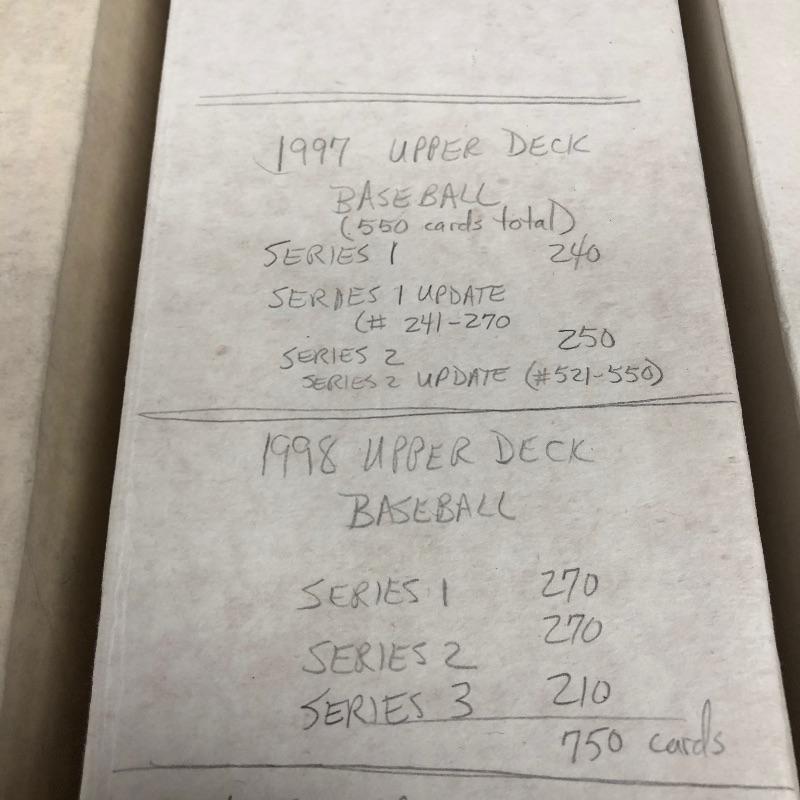 1997 UPPER DECK
BASEBALL
(550 cards total)
SERIES 1 240
SERIES 1 UPDATE
(# 241-270
SERIES 2 250
SERIES 2 UPDATE (#521-550)
1998 UPPER DECK
BASEBALL
SERIES 1 270
SERIES 2 270
SERIES 3 210
750 cards